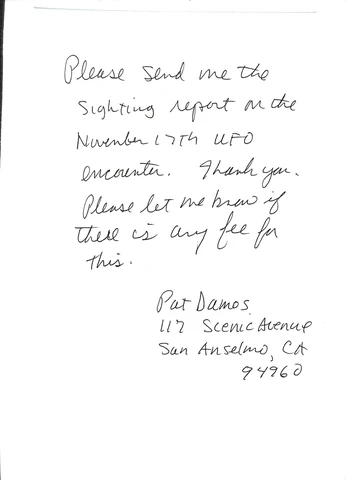 Please send me the
sighting report on the
November 17th UFO
encounter. Thank you.
Please let me know if
there is any fee for
this.
Pat Damos
117 Scenic Avenue
San Anselmo, CA
94960